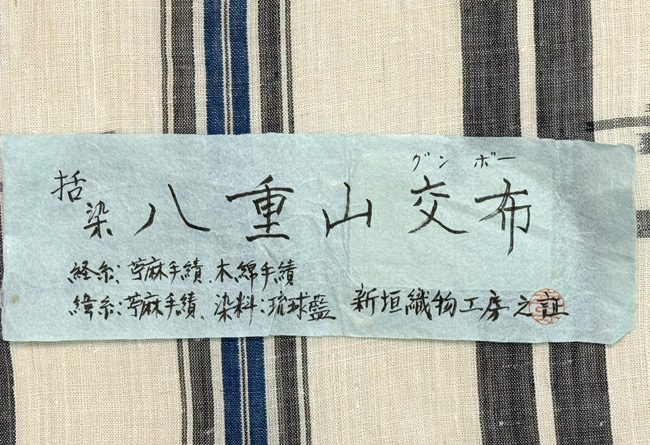 括染 八重山交布
グンボー
経糸:苧麻手績、木綿手績
緯糸:苧麻手績、染料:琉球藍 新垣織物工房之証